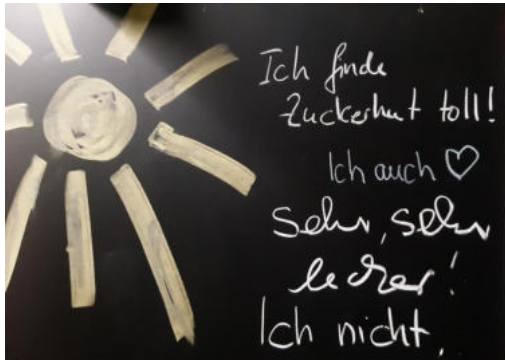 Ich finde
Zuckerhut toll!
Ich auch ♡
Sehr, sehr
lecker!
Ich nicht.